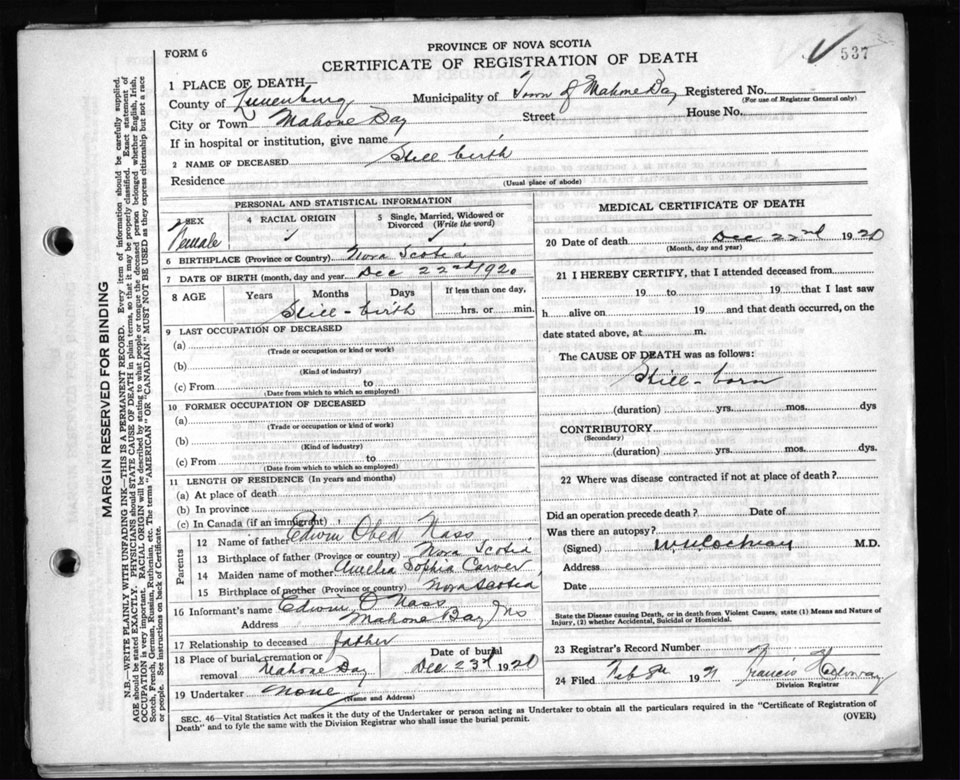 537
FORM 6
PROVINCE OF NOVA SCOTIA
CERTIFICATE OF REGISTRATION OF DEATH
MARGIN RESERVED FOR BINDING
N.B.—WRITE PLAINLY WITH UNFADING INK—THIS IS A PERMANENT RECORD. Every item of information should be carefully supplied.
AGE should be stated EXACTLY. PHYSICIANS should STATE CAUSE OF DEATH in plain terms, so that it may be properly classified. Exact statement of
OCCUPATION is very important. RACIAL ORIGIN will be described by stating to what people or tongue the deceased person belonged whether English, Irish,
Scotch, French, German, Russian, Ruthenian, etc. The terms "AMERICAN" OR "CANADIAN" MUST NOT BE USED as they express citizenship but not a race
or people. See instructions on back of Certificate.
1 PLACE OF DEATH—
County of Lunenburg Municipality of Town of Mahone Bay Registered No.
(For use of Registrar General only)
City or Town Mahone Bay Street House No.
If in hospital or institution, give name
2 NAME OF DECEASED Still birth
Residence
(Usual place of abode)
PERSONAL AND STATISTICAL INFORMATION
3 SEX Female
4 RACIAL ORIGIN
5 Single, Married, Widowed or Divorced (Write the word)
6 BIRTHPLACE (Province or Country) Nova Scotia
7 DATE OF BIRTH (month, day and year) Dec 22nd 1920
8 AGE Years Months Days If less than one day,
Still-birth hrs. or min.
9 LAST OCCUPATION OF DECEASED
(a)
(Trade or occupation or kind or work)
(b)
(Kind of industry)
(c) From to
(Date from which to which so employed)
10 FORMER OCCUPATION OF DECEASED
(a)
(Trade or occupation or kind of work)
(b)
(Kind of industry)
(c) From to
(Date from which to which so employed)
11 LENGTH OF RESIDENCE (In years and months)
(a) At place of death
(b) In province
(c) In Canada (if an immigrant)
Parents
12 Name of father Edwin Obed Nass
13 Birthplace of father (Province or country) Nova Scotia
14 Maiden name of mother Aurelia Sophia Carver
15 Birthplace of mother (Province or country) Nova Scotia
16 Informant's name Edwin O Nass
Address Mahone Bay NS
17 Relationship to deceased father
18 Place of burial, cremation or removal Mahone Bay Date of burial Dec 23rd 1920
19 Undertaker None
(Name and Address)
MEDICAL CERTIFICATE OF DEATH
20 Date of death Dec 22nd 1920
(Month, day and year)
21 I HEREBY CERTIFY, that I attended deceased from
19 to 19 that I last saw
h alive on 19 and that death occurred, on the
date stated above, at m.
The CAUSE OF DEATH was as follows:
Still-born
(duration) yrs. mos. dys
CONTRIBUTORY
(Secondary)
(duration) yrs. mos. dys.
22 Where was disease contracted if not at place of death?
Did an operation precede death? Date of
Was there an autopsy?
(Signed) W.N. Cochran M.D.
Address
Date
State the Disease causing Death, or in death from Violent Causes, state (1) Means and Nature of
Injury, (2) whether Accidental, Suicidal or Homicidal.
23 Registrar's Record Number
24 Filed Feb 8th 1921 Francis
Division Registrar
SEC. 46—Vital Statistics Act makes it the duty of the Undertaker or person acting as Undertaker to obtain all the particulars required in the "Certificate of Registration of
Death" and to fyle the same with the Division Registrar who shall issue the burial permit.
(OVER)